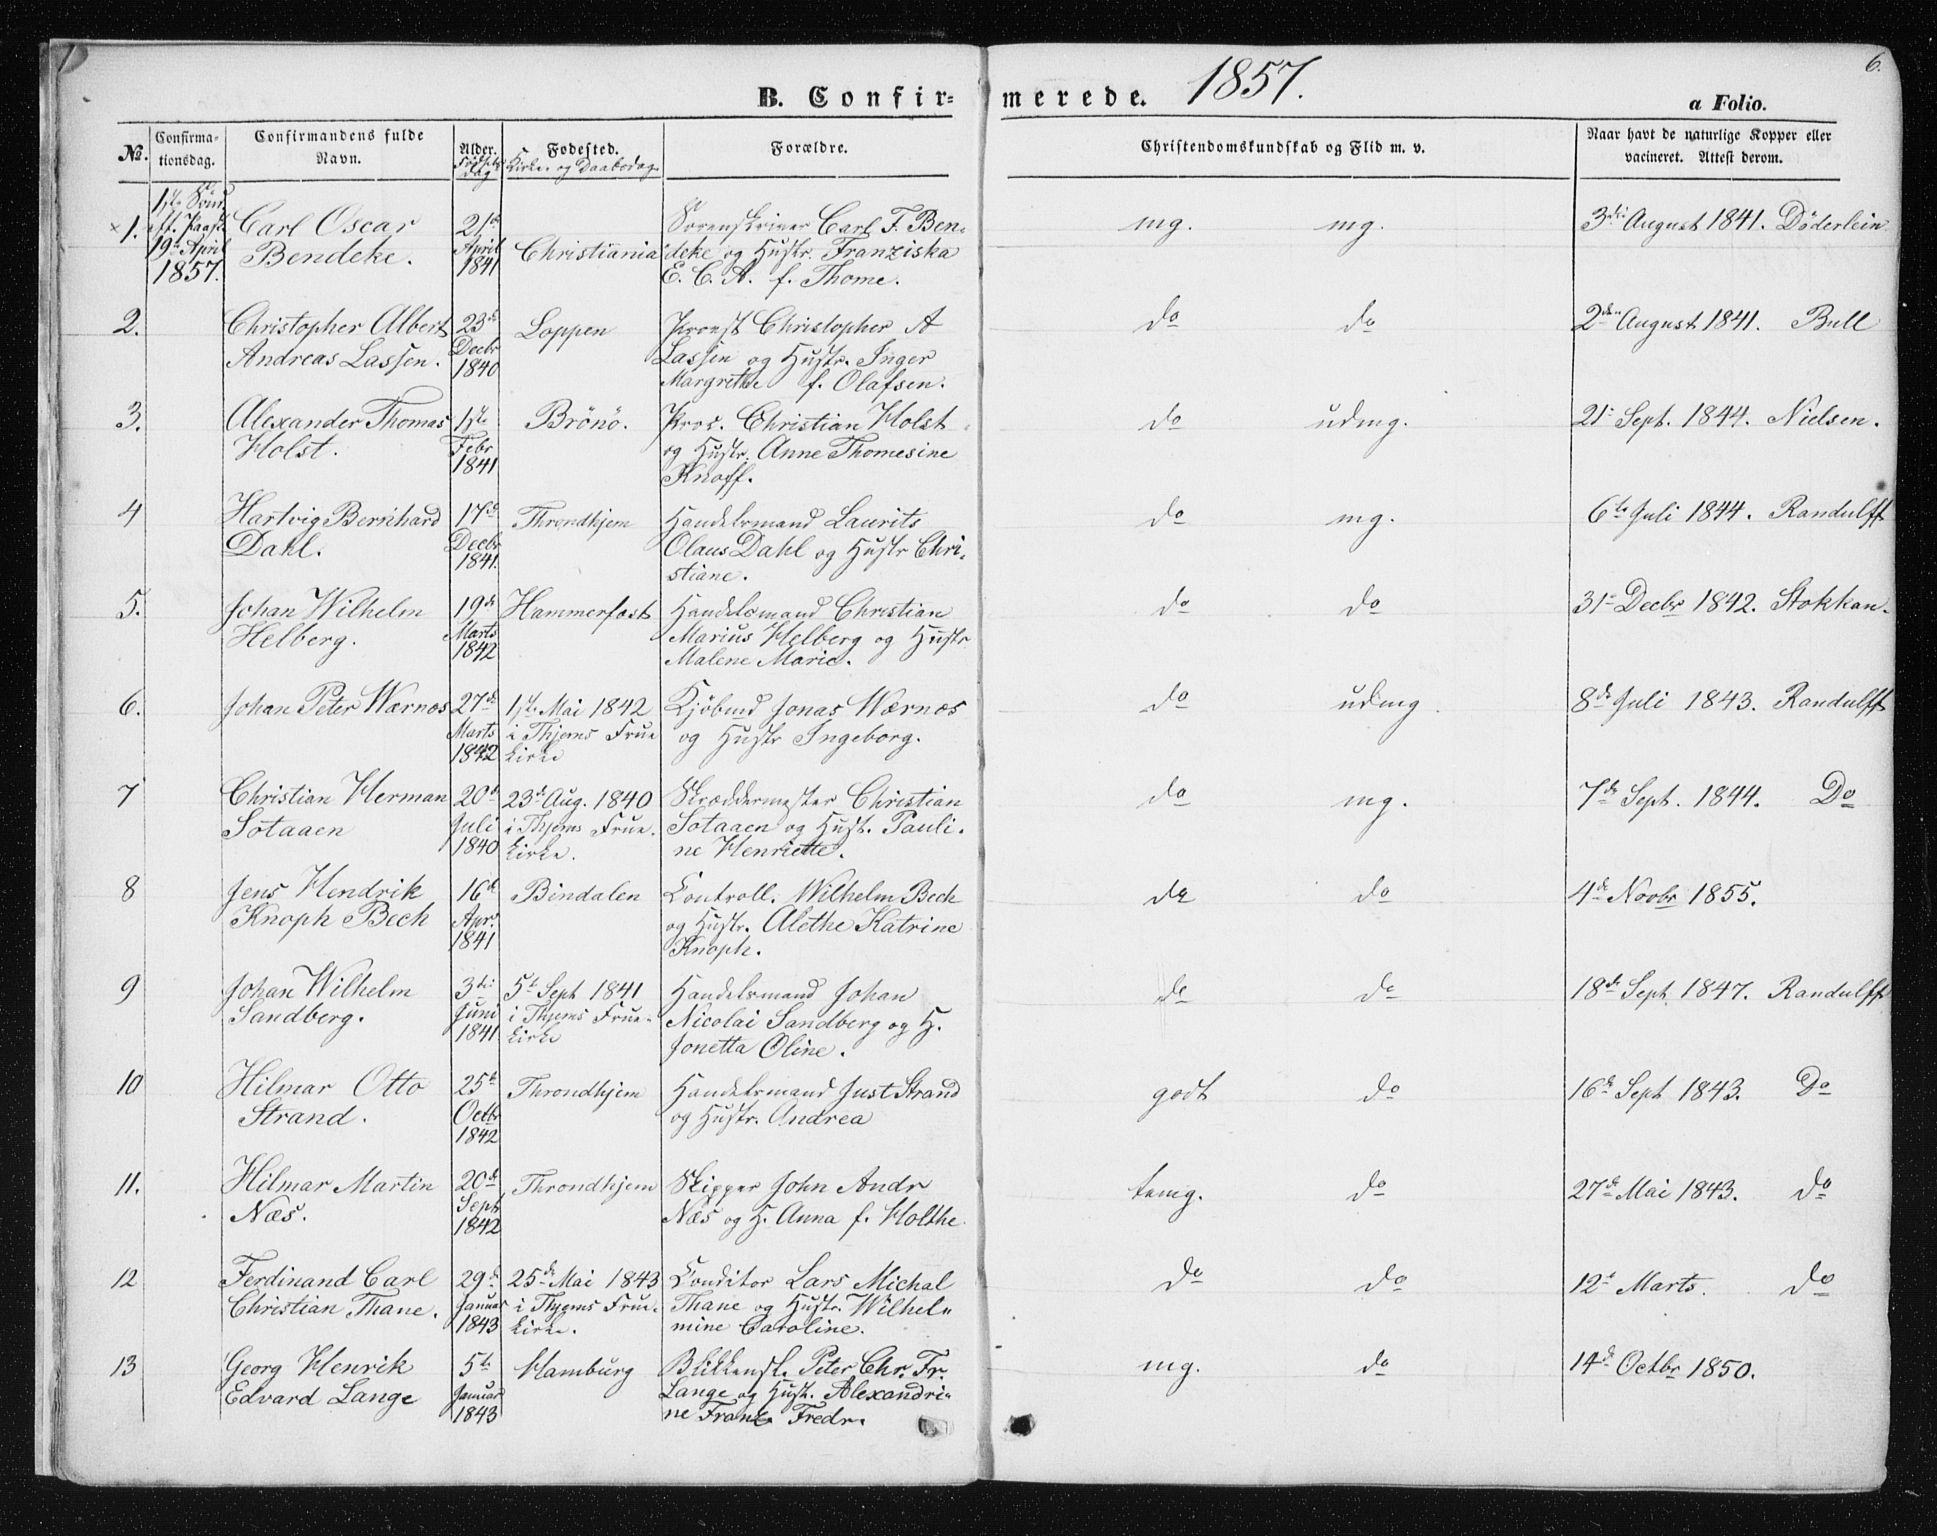 6.
B. Confir= merede. 1857.
a Folio.
No.
Confirma-
tionsdag.
Confirmandens fulde
Navn.
Alder.
Fødsels-
dag
Fødested.
Kirke- og Daabsdag.
Forældre.
Christendomskundskab og Flid m. v.
Naar havt de naturlige Kopper eller
vacineret. Attest derom.
1ste Sønd
eft. Paaske
19de April
1857.
1. Carl Oscar
Bendeke.
21de
April
1841
Christiania
Sorenskriver Carl F. Ben-
deke og Hustr. Franziska
E. C. A. f. Thome.
mg. mg. 3die August 1841. Döderlein
2. Christopher Albert
Andreas Lassen.
23de
Decbr
1840
Loppen
Provst Christopher A
Lassen og Hustr. Inger
Margrethe f. Olafsen.
do do 2den August 1841. Bull
3. Alexander Thomas
Holst.
1ste
Febr
1841
Brönö.
Pros. Christian Holst
og Hustr. Anne Thomesine
Knoff.
do udmg. 21- Sept. 1844. Nielsen.
4 Hartvig Bernhard
Dahl.
17de
Decbr
1841.
Throndhjem
Handelsmand Laurits
Olaus Dahl og Hustr Chri-
stiane.
do mg. 6te Juli 1844. Randulff
5. Johan Wilhelm
Helberg.
19de
Marts
1842
Hammerfest
Handelsmand Christian
Marius Helberg og Hustr
Malene Marie.
do do 31- Decbr 1842. Stokkan.
6. Johan Peter Wærnos
27de
Marts
1842
1ste Mai 1842
i Thjems Frue
Kirke
Kjöbmd Jonas Wærnos
og Hustr Ingeborg.
do udmg 8de Juli 1843. Randulff
7 Christian Herman
Sotaaen
20de
Juli
1840
23de Aug. 1840
i Thjems Frue-
Kirke.
Skræddermester Christian
Sotaaen og Hust. Pauli-
ne Henriette.
do mg. 7de Sept. 1844. Do
8 Jens Hendrik
Knoph Bech
16de
Apr.
1841
Bindalen
Controll. Wilhelm Bech
og Hustr. Alethe Katrine
Knoph.
do do 4de Novbr 1855.
9 Johan Wilhelm
Sandberg.
3die
Juni
1841
5te Sept 1841
i Thjems Frue-
Kirke
Handelsmand Johan
Nicolai Sandberg og H.
Jonetta Oline.
do do 18de Sept. 1847. Randulff
10 Hilmar Otto
Strand.
25de
Octbr
1842
Throndhjem
Handelsmand Just Strand
og Hustr. Andrea
godt do 16de Sept 1843. Do
11. Hilmar Martin
Næs.
20de
Sept
1842
Throndhjem
Skipper John Andr
Næs og H. Anna f. Holthe
temg. do 27de Mai 1843. do
12 Ferdinand Carl
Christian Thane.
29de
Januar
1843
25de Mai 1843
i Thjems Frue-
Kirke.
Conditor Lars Michal
Thane og Hustr. Wilhel-
mine Caroline.
do do 12te Marts. do
13 Georg Henrik
Edvard Lange
5te
Januar
1843
Hamburg
Blikkensl. Peter Chr. Fr.
Lange og Hust. Alexandri-
ne Franz. Fredr.
mg. do 14de Octbr 1850.